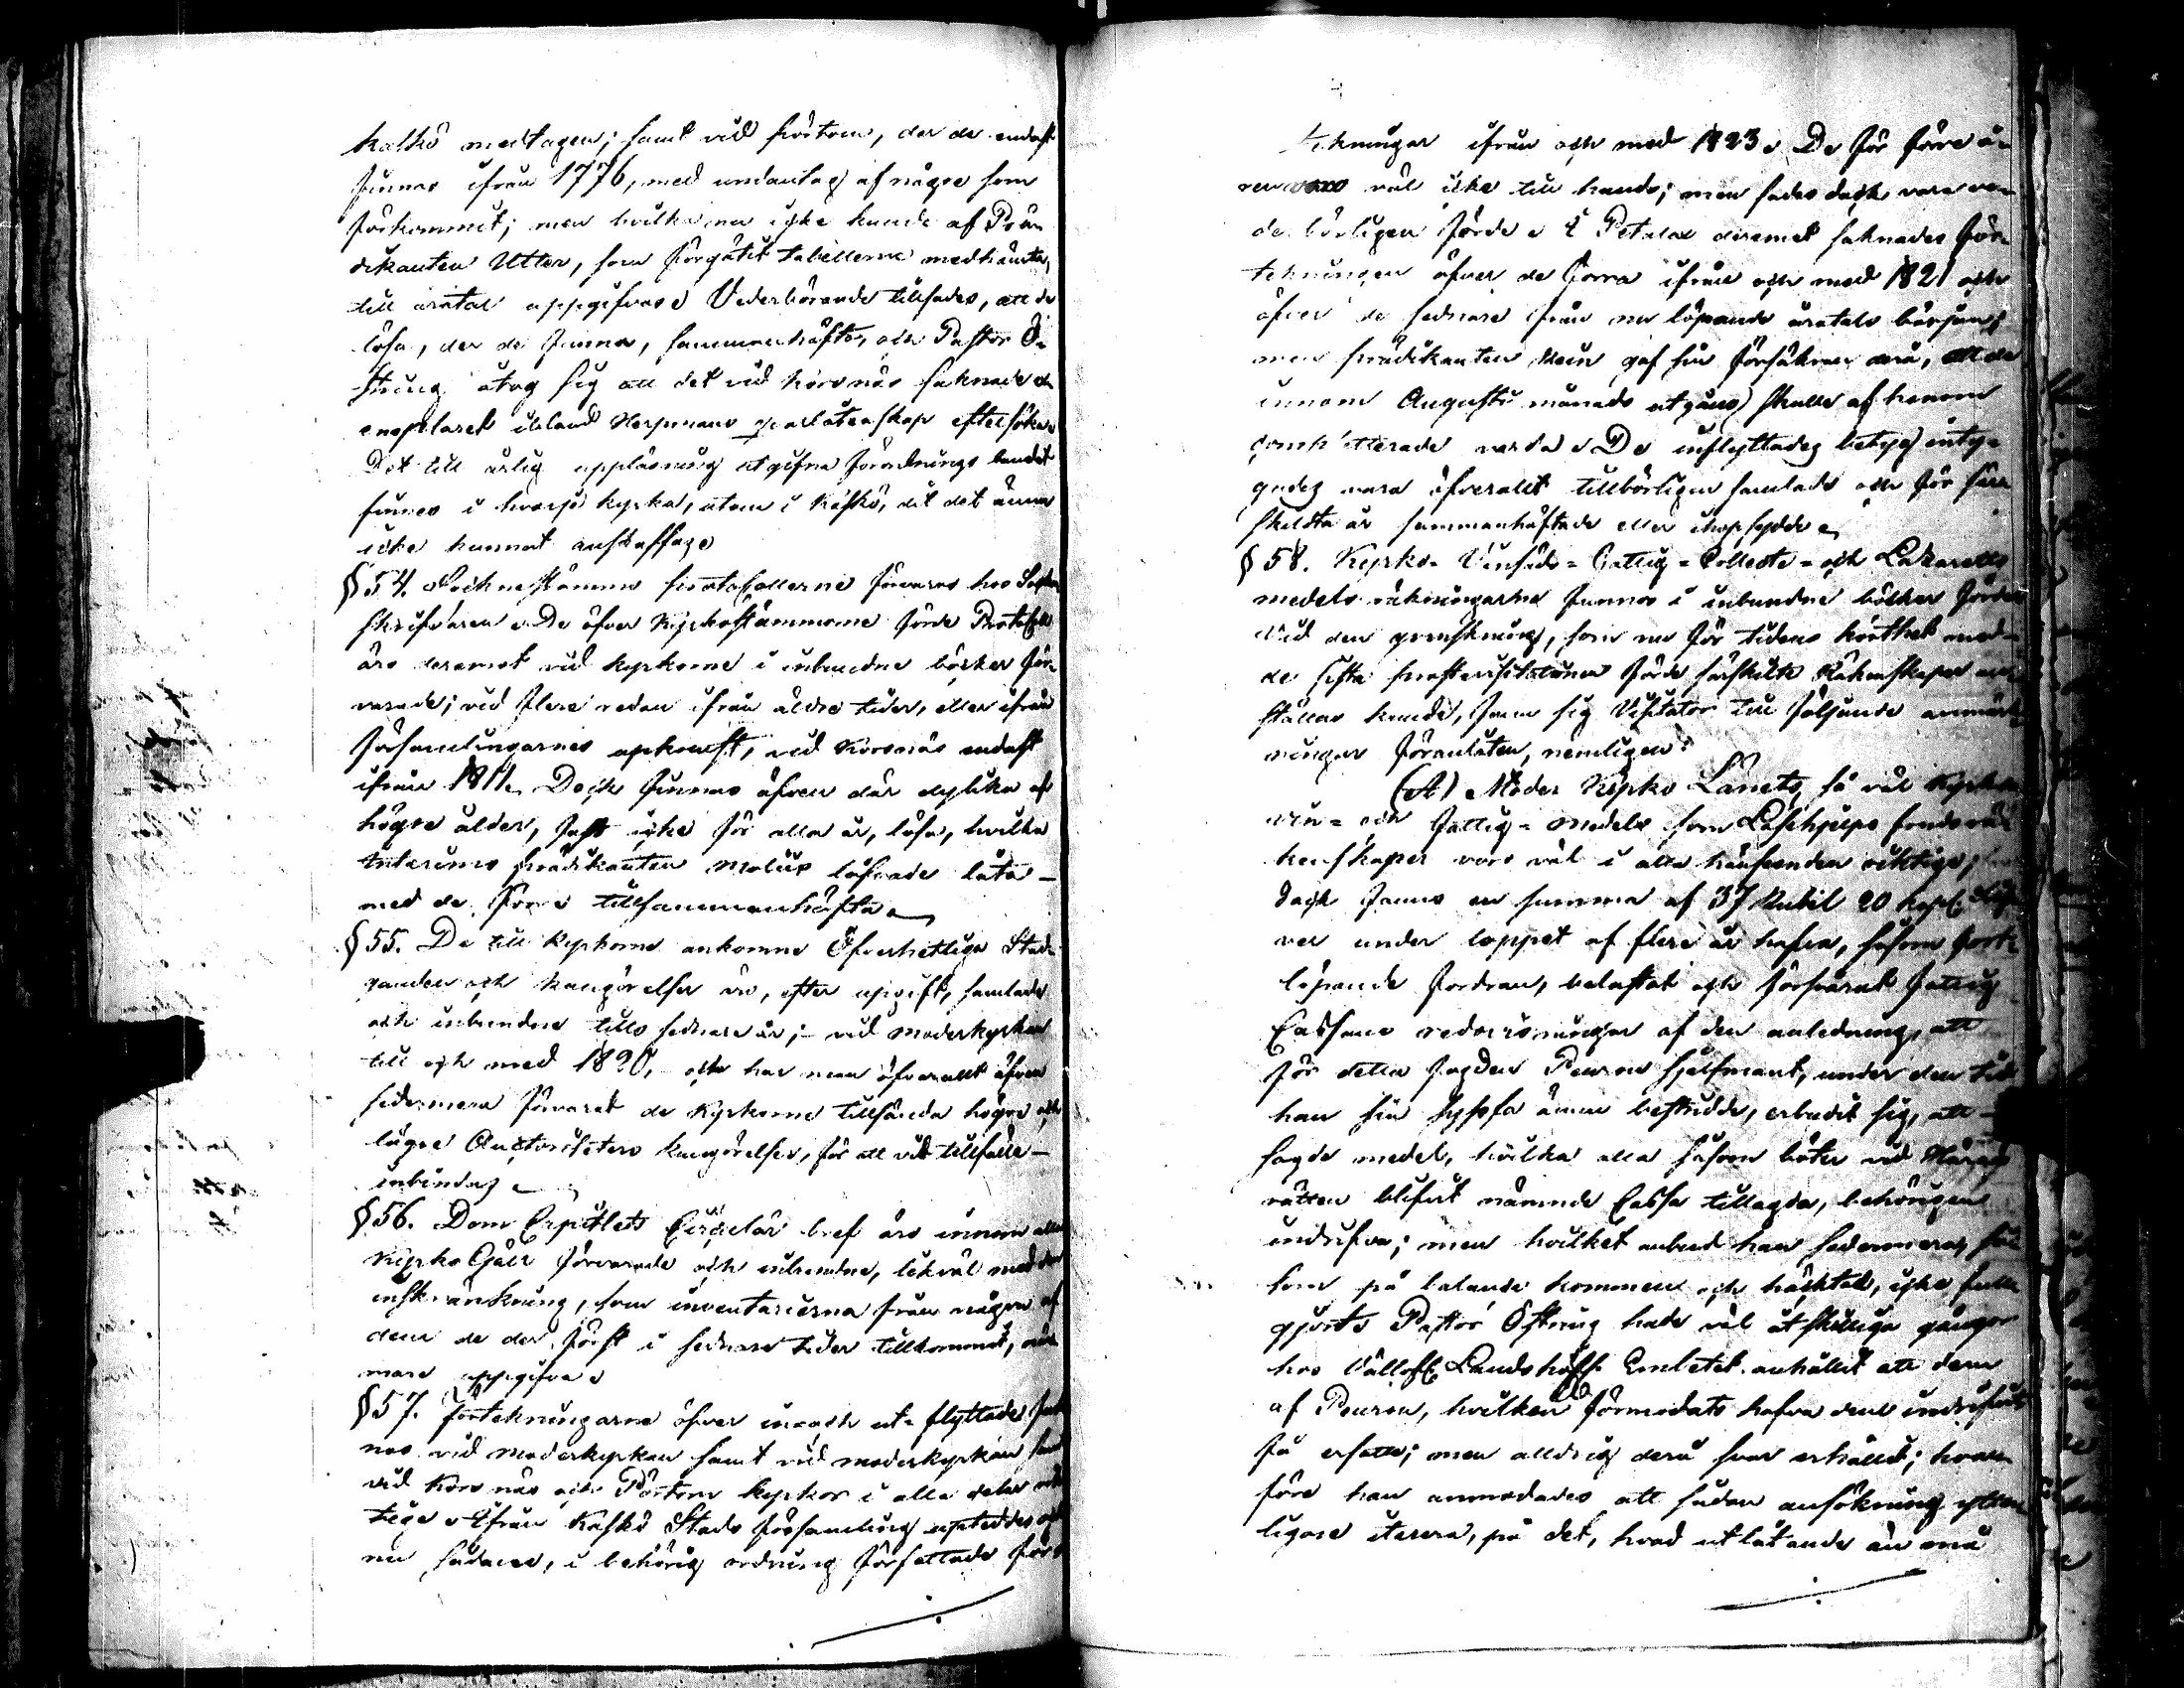 kaskö medtagen; samt vid Pörtom, der de endast
finnas ifrån 1776, med undantag af någre som
förkommit; men hvilka nu icke kunde af Præ-
dikanten Utter, som förgätit tabellerne medhämta,
till åratal uppgifvas. Vederbörande tillsades, att de
lösa, der de finnas, sammanhäfta, och Pastor Ö-
string åtog sig att det vid Korsnäs saknade
exemplaret ibland Herrmans qvarlåtenskap eftersöka.
Det till årlig uppläsning utgifna förordnings bandet
finnes i hvarje kyrka, utom i Kaskö, dit det ännu
icke kunnat anskaffas
§ 54. Sockne stämmo protocollerne förvaras hos Sockne
skrifvaren. De öfver Kyrkostämmorne förde Protocoll
äro deremot vid kyrkorne i inbundne böcker för-
varade; vid flere redan ifrån äldre tider, eller ifrån
församlingarnes upkomst, vid Korsnäs endast
ifrån 1811. Dock finnas äfven där dylika af
högre ålder, fast icke för alla år, lösa, hvilka
Interims prædikanten Molin lofvade låta
med de förre tillsammanhäfta.
§ 55. De till kyrkorne ankomne Öfverhetliga Stad-
ganden och kungörelser äro, efter upgift, samlade
och inbundne tills sednare år; - vid moderkyrkan
till och med 1820, och har man öfverallt äfven
sedermera förvarat de Kyrkorne tillsända högre och
lägre Auctoriteters kungörelser, för att vid tillfälle
inbindas
§ 56. Dom Capitlets Circulär bref äro innom alla
Kyrko Gäll förvarade och inbundne, likväl med den
inskränkning, som inventarierna från någon af
dem de der först i sednare tider tillkommit, när
mare uppgifva.
§ 57. Förtekningarne öfver in och ut- flyttade fin
nas vid moderkyrkan samt vid moderkyrkan samt
vid Korsnäs och Pörtom kyrkor i alla delar rik
tige. Ifrån Kaskö Stads församling upteddes ock
nu sådane, i behörig ordning författade för-
tekningar ifrån och med 1823. De för förre å-
ren voro väl icke till hands; men sades dock vara
de börligen förde. I Petalax deremot saknades för-
tekningen öfver de förra ifrån och med 1821 och
öfver de sednare ifrån nu löpande åratals början;
men prædikanten Hein gaf sin försäkran derå, att de
innom Augusti månads utgång skulle af honom
completterade varda. De inflyttades betyg inty-
gades vara öfverallt tillbörligen samlade och för sär
skildta år sammanhäftade eller ihopsydde
§ 58. Kyrko- Vinsäds- Fattig- Collecte- och Lazaretts
medels räkningarne finnas i inbundne böcker förde
Vid den granskning, som nu för tidens korthet med
de sista prostvisitationen förde särskilte Räkenskaper an
ställas kunde, fann sig Visitator till följande anmärk
ningar föranlåten, nemligen:
(A) Moder Kyrko Länets, så väl Kyrko
vin- och fattig- medels som Låsehjelps fonds rä
kenskaper voro väl i alla hänseenden riktige;
dock fanns en summa af 37 Rubel 20 kop.
ver under loppet af flere år hafva, såsom fort
löpande fordran, belastat och försvårat fattig
Cassans redovisningar af den anledning, att
för detta fogden Peuron sjelfmant, under den tid
han sin syssla ännu bestridde, erbudit sig, att
sagde medel, hvilka alla såsom böter vid Härads
rätten blifvit nämnde Cassa tillagda, behörigen
indrifva; men hvilket anbud han sedermera, så
som på balance kommen och häcktad, icke full
gjort. Pastor Östring hade väl åtskillige gånger
hos Vällofl. Landshöfd. Embetet anhållit att dem
af Peuron, hvilken förmodats hafva dem indrifvit
få ersatte; men alldrig derå svar erhållit; hvar
före han anmodades att sådan ansökning ytter
ligare iterera, på det, hvad utlåtande än må